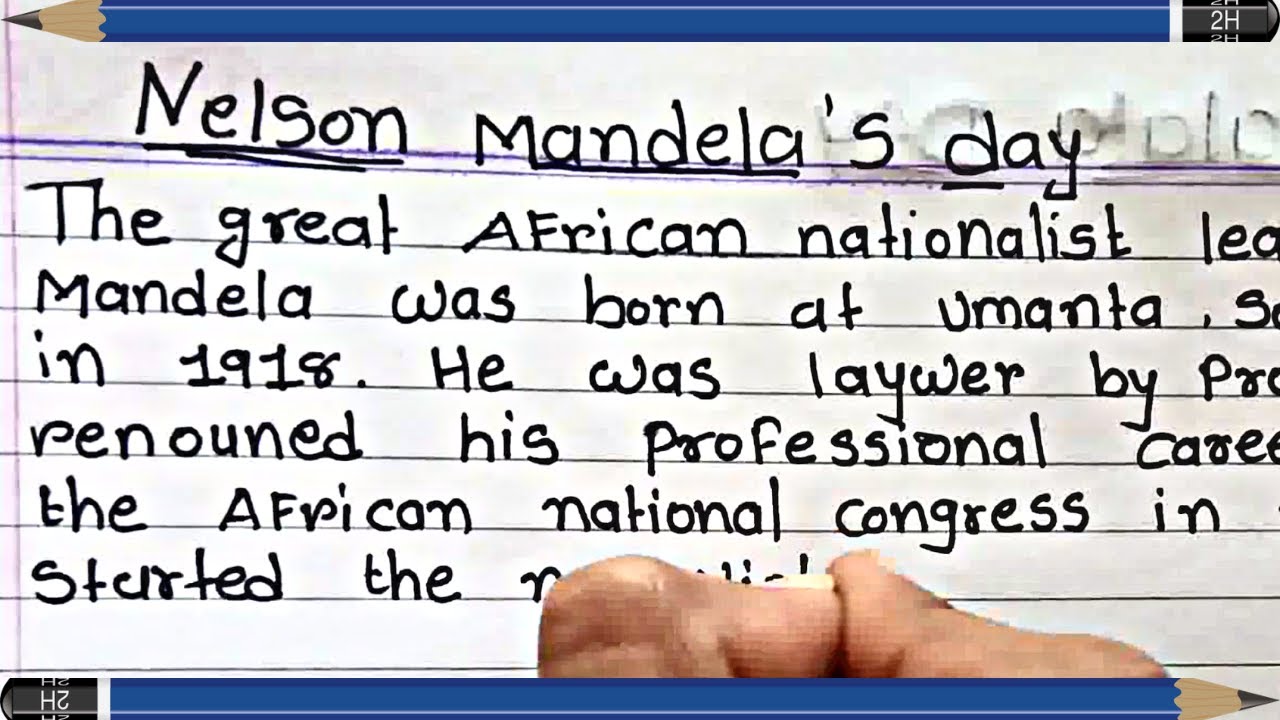 2H
Nelson Mandela's day
The great African nationalist lea
Mandela was born at Umanta, so
in 1918. He was laywer by Pro
renouned his professional caree
the African national congress in
Started the
2H